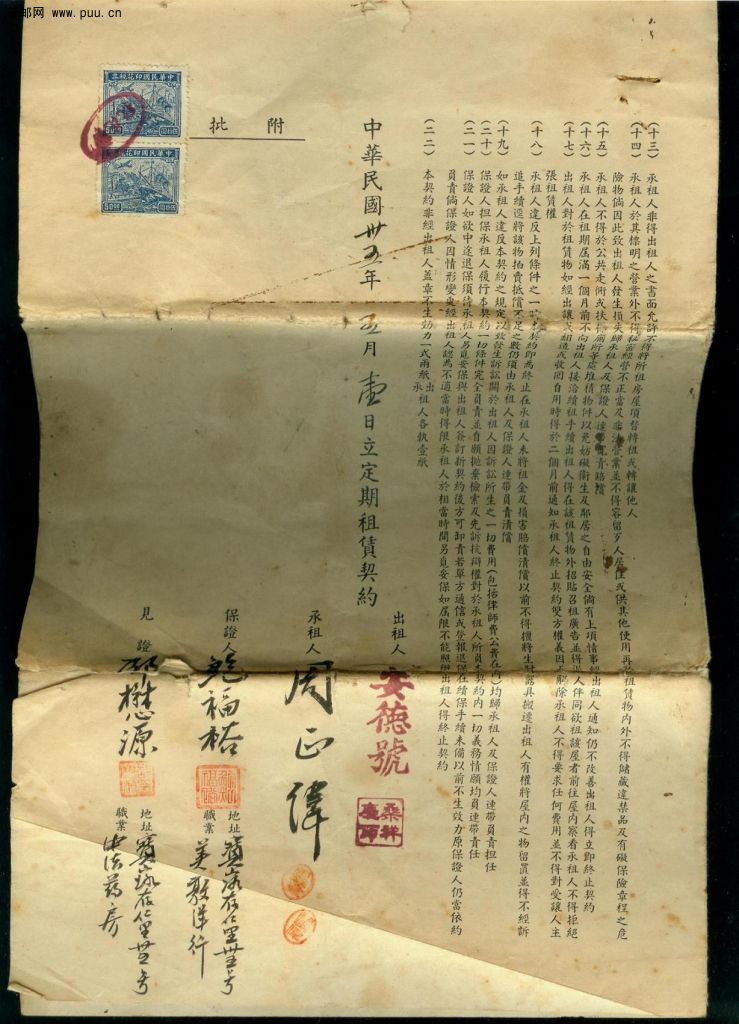 邮网 www.puu.cn
(十三) 承租人非得出租人之書面允許不得將所租房屋項替轉租或轉讓他人
(十四) 承租人於其標明之營業外不得秘密經營不正當及非法營業並不得容留歹人居住或供其他使用再於租賃物內外不得儲藏違禁品及有礙保險章程之危
險物倘因此致出租人發生損失歸承租人及保證人連帶負責賠償
(十五) 承租人不得於公共走術或扶梯廁所等處堆積物件以免妨礙衛生及鄰居之自由安全倘有上項情事經出租人通知仍不改善出租人得立即終止契約
(十六) 承租人在租期屆滿一個月前不向出租人接洽續租手續出租人得在該租賃物外招貼召租廣告並得出人伴同欲租該屋者前往屋內察看承租人不得拒絕
(十七) 出租人對於租賃物如經出讓或組造或收回自用時得於二個月前通知承租人終止契約雙方權義因而解除承租人不得要求任何費用並不得對受讓人主
張租賃權
(十八) 承租人違反上列條件之一時本契約即為終止在承租人未將租金及損害賠償清償以前不得擅將生財器具搬遷出租人有權將屋內之物留置並得不經訴
追手續逕將該物拍賣抵償不足之數仍須由承租人及保證人連帶負責清償
(十九) 如承租人違反本契約之規定以致發生訴訟關於出租人因訴訟所生之一切費用(包括律師費公費在內)均歸承租人及保證人連帶負責担任
(二十) 保證人担保承租人履行本契約一切條件完全負責並自願拋棄檢索及先訴抗辯權對於承租人所負本契約內一切義務情願均負連帶責任
(二一) 保證人如欲中途退保須待承租人另覓妥保與出租人簽訂新契約後方可卸責若單方通信或登報退保在續保手續未備以前不生效力原保證人仍當依約
負責倘保證人因情形變更經出租人認為不適當時得限承租人於相當時間另覓妥保如屆限不能照辦出租人得終止契約
(二二) 本契約非經出租人蓋章不生効力一式兩紙出承租人各執壹紙
中華民國卅五年 五月壹日立定期租賃契約
出租人 安德號
承租人 周正偉
保證人 鮑福裕
地址
職業 美敦洋行
見證 懋源
地址
職業 中法藥房
附批
中華民國印花稅票
中華民國印花稅票